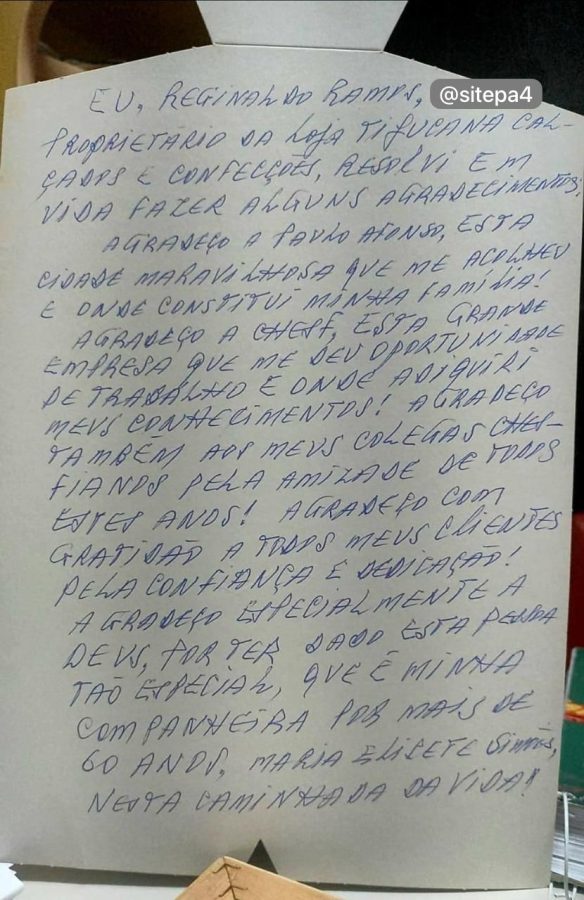 EU, REGINALDO RAMOS,
@sitepa4
PROPRIETÁRIO DA LOJA TIJUCANA CAL-
ÇADOS E CONFECÇÕES, RESOLVI EM
VIDA FAZER ALGUNS AGRADECIMENTOS:
AGRADEÇO A PAULO AFONSO, ESTA
CIDADE MARAVILHOSA QUE ME ACOLHEU
E ONDE CONSTITUI MINHA FAMÍLIA!
AGRADEÇO A CHESF, ESTA GRANDE
EMPRESA QUE ME DEU OPORTUNIDADE
DE TRABALHO E ONDE ADIQUIRI
MEUS CONHECIMENTOS! AGRADEÇO
TAMBÉM AOS MEUS COLEGAS CHES-
FIANOS PELA AMIZADE DE TODOS
ESTES ANOS! AGRADEÇO COM
GRATIDÃO A TODOS MEUS CLIENTES
PELA CONFIANÇA E DEDICAÇÃO!
AGRADEÇO ESPECIALMENTE A
DEUS, POR TER DADO ESTA PESSOA
TÃO ESPECIAL, QUE É MINHA
COMPANHEIRA POR MAIS DE
60 ANOS, MARIA ELISETE SIMÕES,
NESTA CAMINHADA DA VIDA!